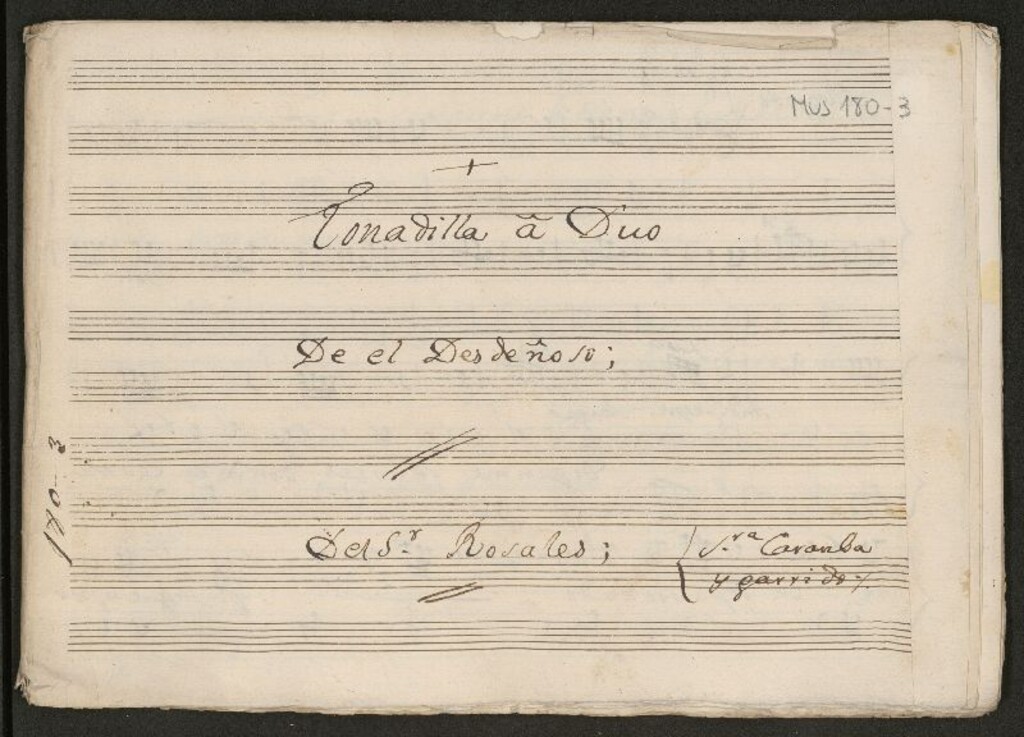 Mus 180-3
+
Tonadilla â Duo
De el Desdeñoso;
180-3
Del S.r Rosales;
S.ra Caramba
y garrido